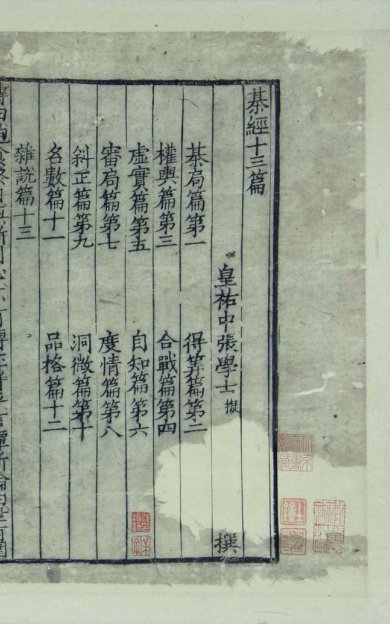 棊經十三篇
皇祐中張學士擬 撰
棊局篇第一 得筭篇第二
權輿篇第三 合戰篇第四
虛實篇第五 自知篇第六
審局篇第七 度情篇第八
斜正篇第九 洞微篇第十
名數篇十一 品格篇十二
雜說篇十三